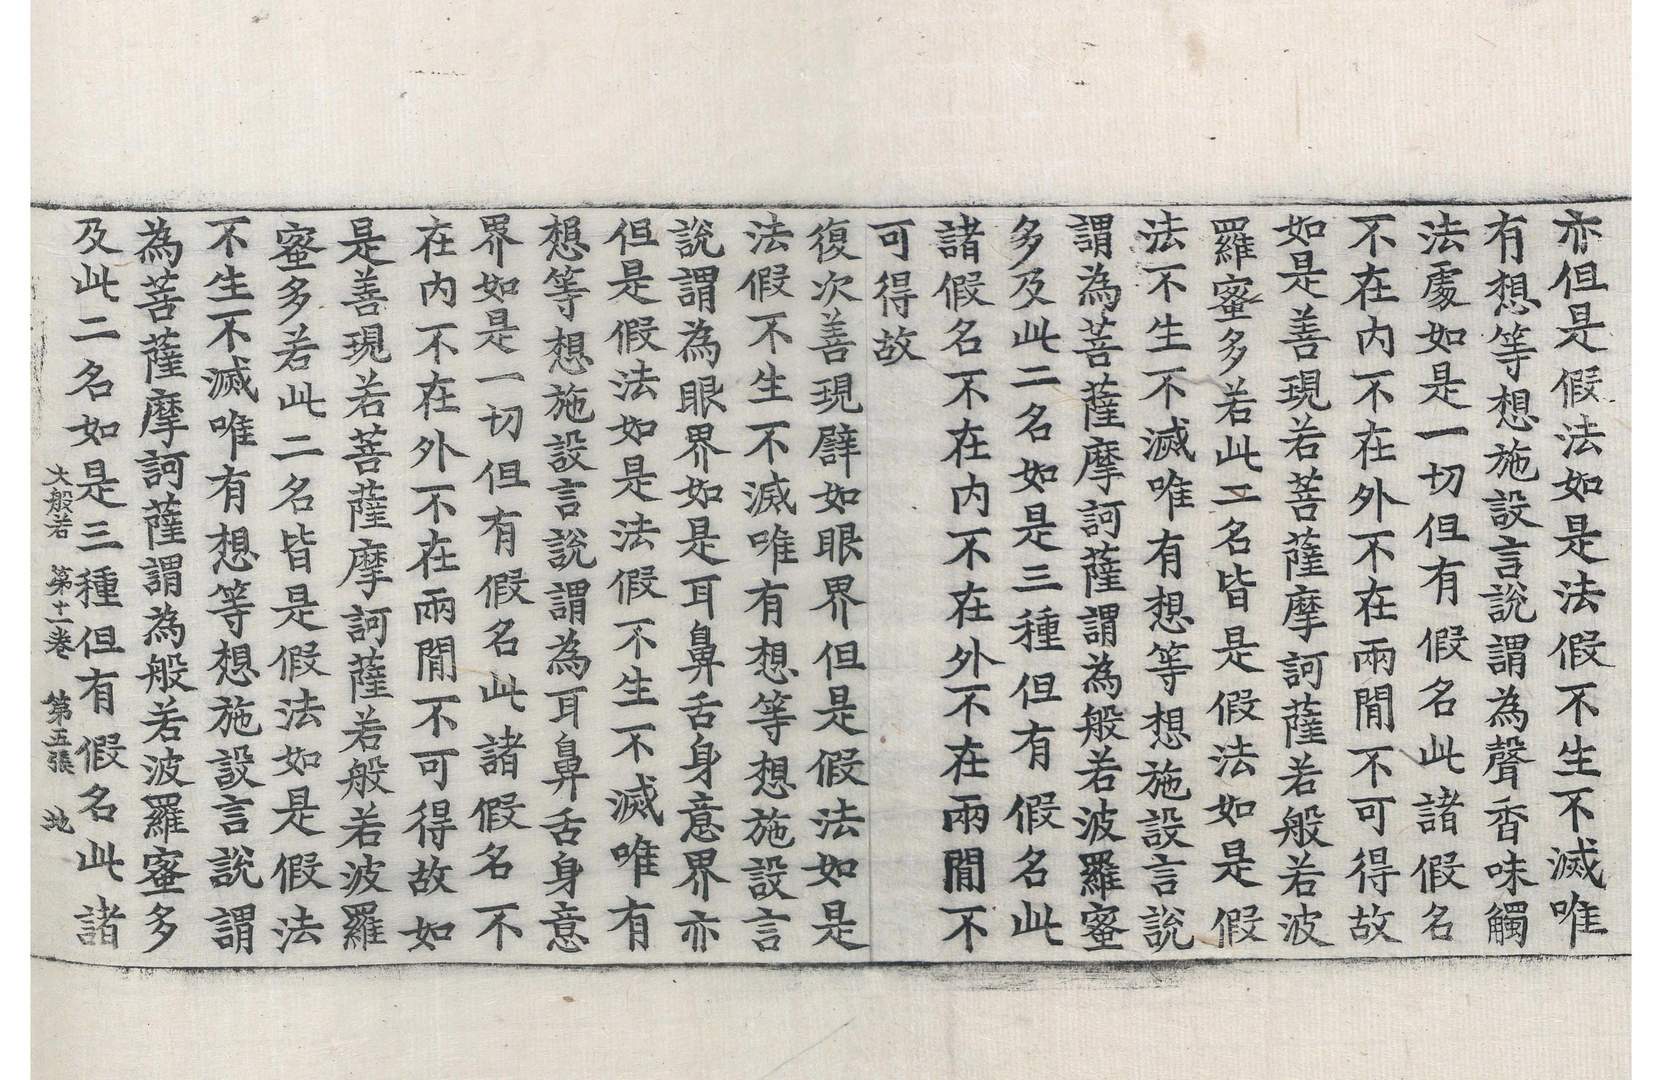 亦但是假法如是法假不生不滅唯
有想等想施設言說謂為聲香味觸
法處如是一切但有假名此諸假名
不在内不在外不在兩閒不可得故
如是善現若菩薩摩訶薩若般若波
羅蜜多若此二名皆是假法如是假
法不生不滅唯有想等想施設言說
謂為菩薩摩訶薩謂為般若波羅蜜
多及此二名如是三種但有假名此
諸假名不在内不在外不在兩閒不
可得故
復次善現譬如眼界但是假法如是
法假不生不滅唯有想等想施設言
說謂為眼界如是耳鼻舌身意界亦
但是假法如是法假不生不滅唯有
想等想施設言說謂為耳鼻舌身意
界如是一切但有假名此諸假名不
在内不在外不在兩閒不可得故如
是善現若菩薩摩訶薩若般若波羅
蜜多若此二名皆是假法如是假法
不生不滅唯有想等想施設言說謂
為菩薩摩訶薩謂為般若波羅蜜多
及此二名如是三種但有假名此諸
大般若 第十一卷 第五張 地